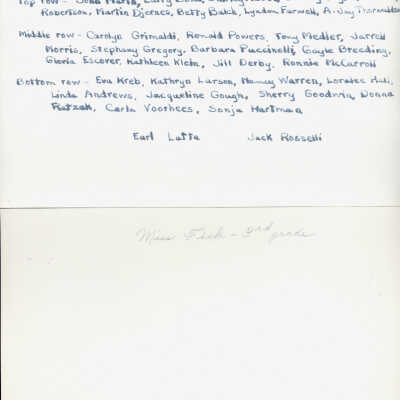 Top row - John Maria, Larry
Robertson, Martin Djernes, Betty Balch, Lyndon Farwell, A. Jay Thorwaldson
Middle row - Carolyn Grimaldi, Ronald Powers, Tony Medler, Jarrell
Morris, Stephany Gregory, Barbara Puccinelli, Gayle Breeding,
Gloria Escover, Kathleen Klein, Jill Derby, Ronnie McCarroll
Bottom row - Eva Kreb, Kathryn Larson, Nancy Warren, Loralee
Linda Andrews, Jacqueline Gough, Sherry Goodwin, Donna
Ratzak, Carla Voorhees, Sonja Hartman
Earl Latta Jack Rosselli
Miss Fish - 3rd grade